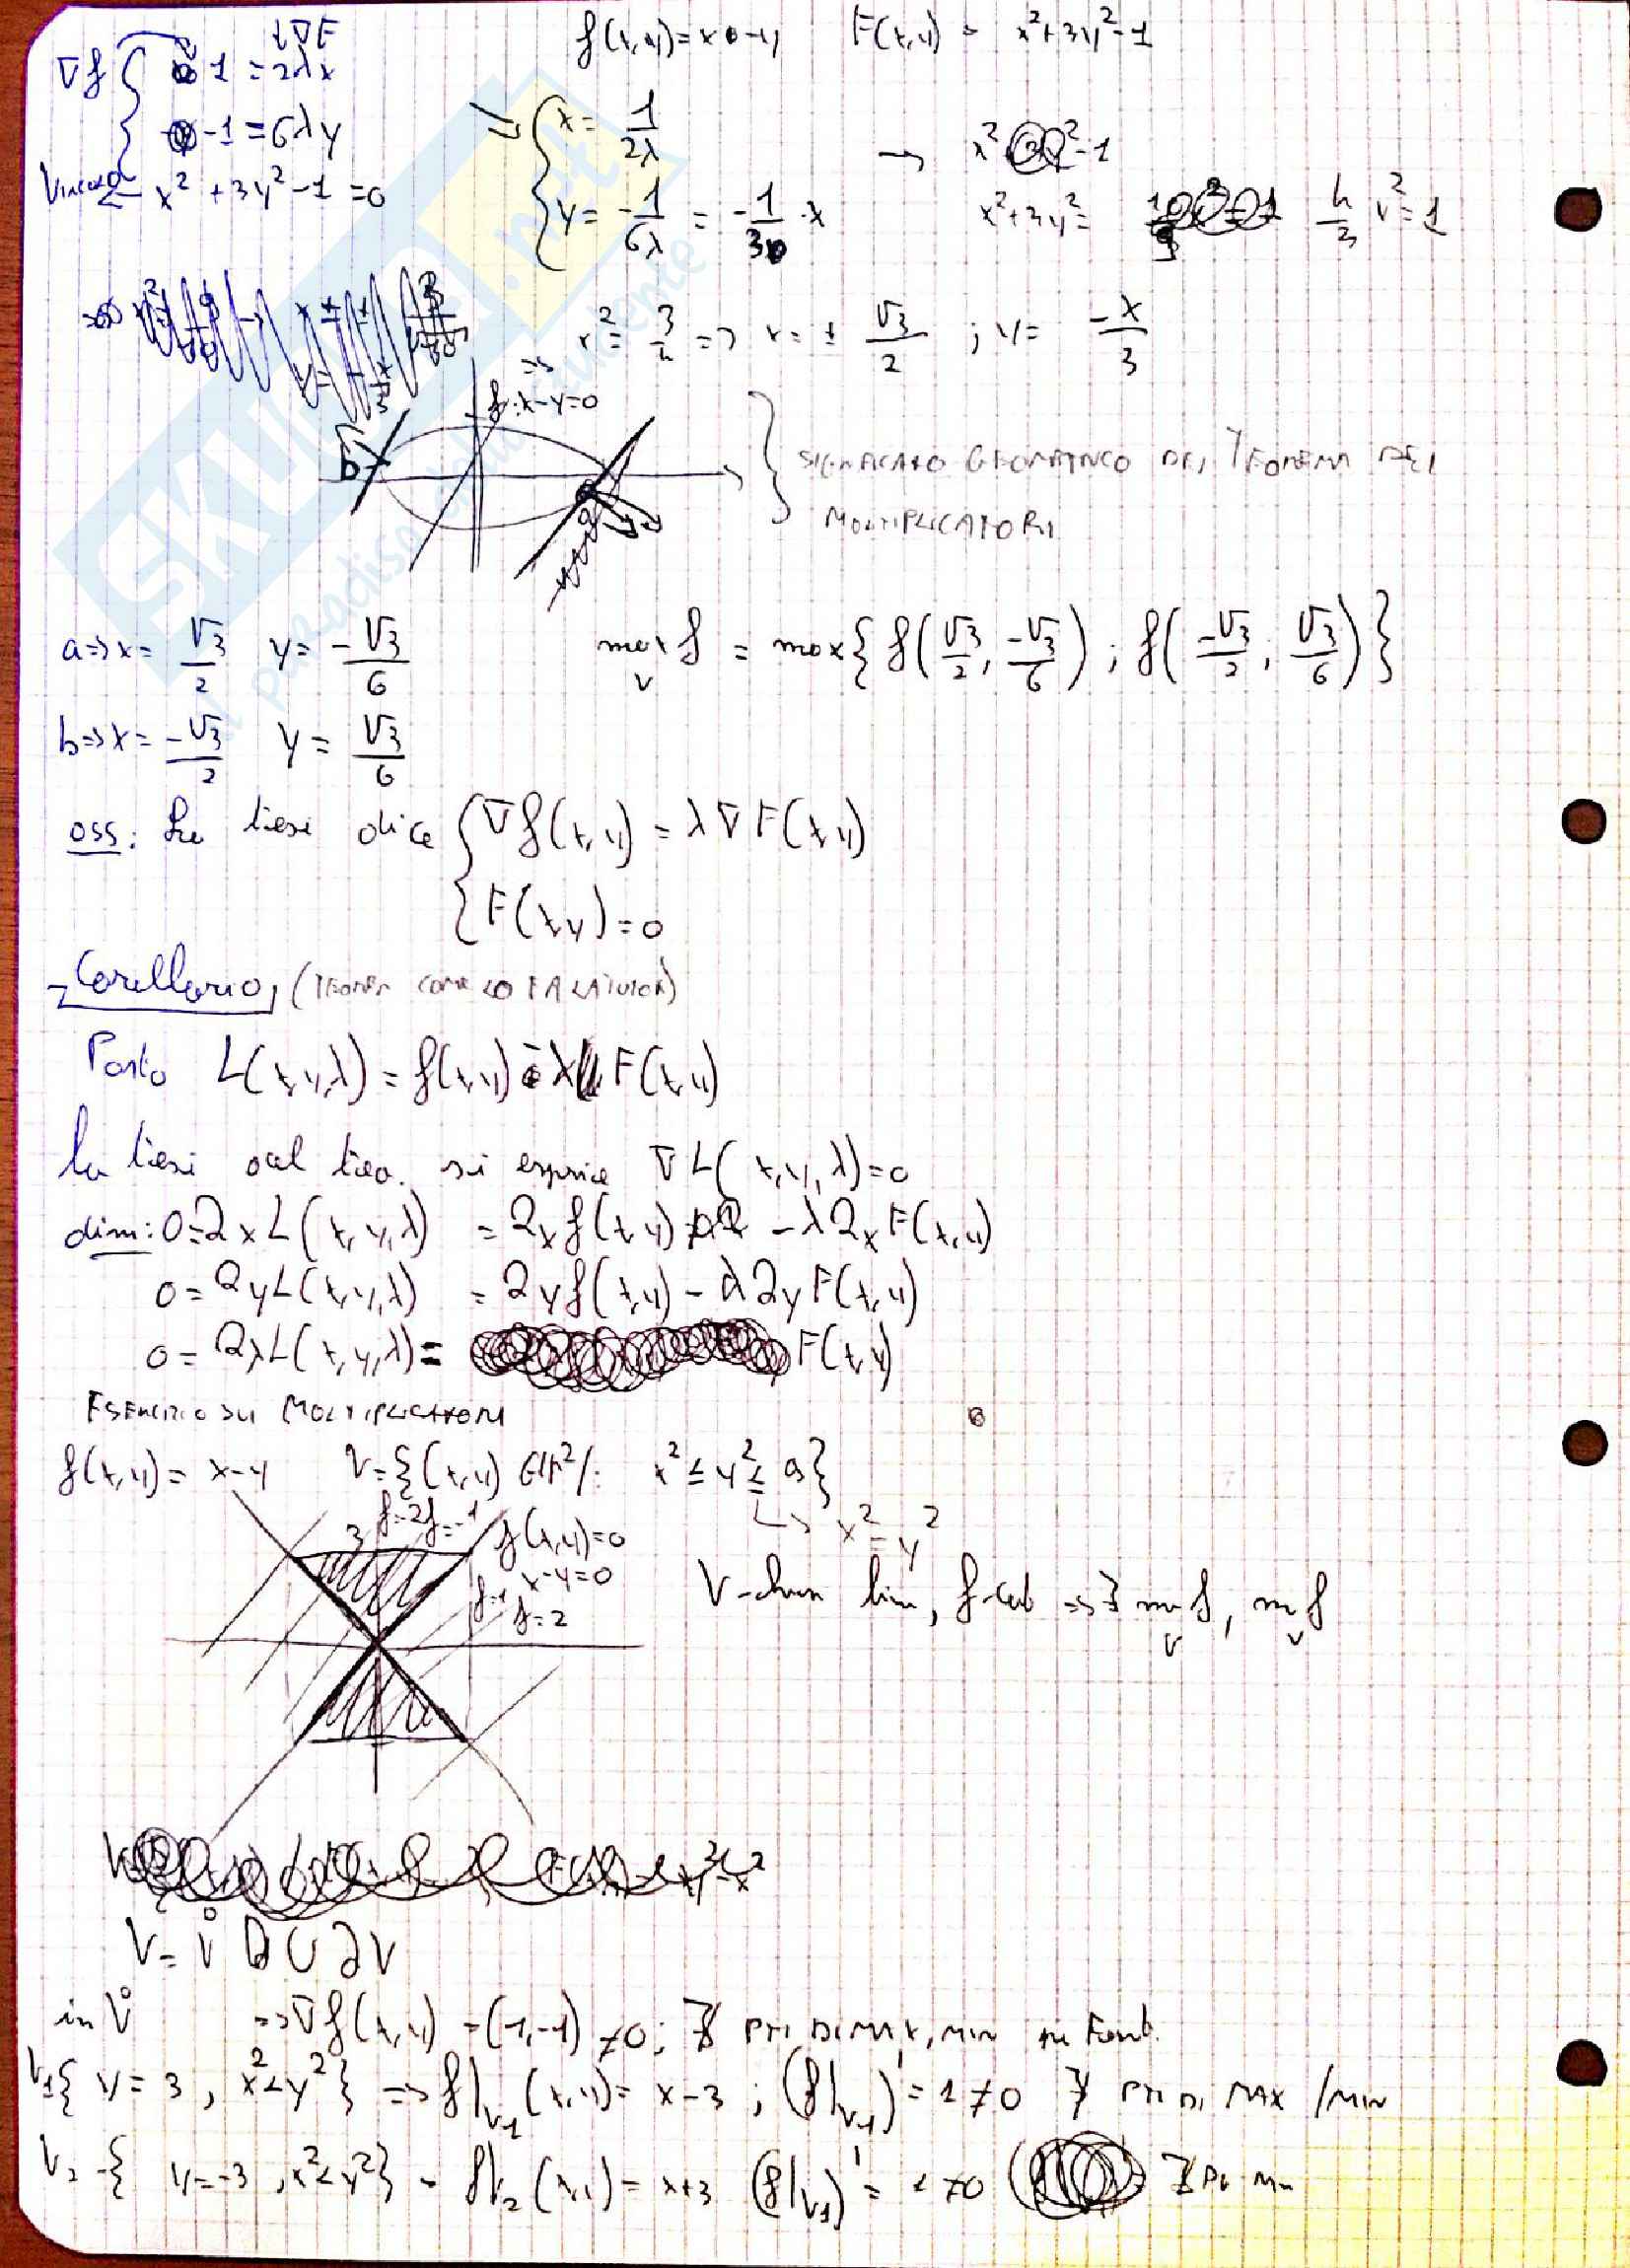 ∇f { 1 = 2λx   λ∇F   f(x,y) = x-y   F(x,y) = x²+3y²-1
-1 = 6λy   => { x = 1/2λ   → x² -1
VINCOLO ← x² + 3y² - 1 = 0   y = -1/6λ = -1/3 · x   x²+3y² = 4/3 x² = 1
=> x² = 3/4 => x = ± √3/2 ; y = -x/3
f: x-y=0
b
SIGNIFICATO GEOMETRICO DEL TEOREMA DEI
MOLTIPLICATORI
a => x = √3/2   y = -√3/6   max f = max{ f(√3/2, -√3/6) ; f(-√3/2, √3/6) }
V
b => x = -√3/2   y = √3/6
oss: La tesi dice { ∇f(x,y) = λ∇F(x,y)
F(x,y) = 0
Corollario, (TEOREMA COME LO FA LA TUTOR)
Posto L(x,y,λ) = f(x,y) - λ F(x,y)
la tesi del teo. si esprime ∇L(x,y,λ) = 0
dim: 0 = ∂xL(x,y,λ) = ∂xf(x,y) - λ∂xF(x,y)
0 = ∂yL(x,y,λ) = ∂yf(x,y) - λ∂yF(x,y)
0 = ∂λL(x,y,λ) = F(x,y)
ESERCIZIO SUI MOLTIPLICATORI
f(x,y) = x-y   V = {(x,y) ∈ℝ² /: x² ≤ y² ≤ 9}
↳ x² = y²
3   f=-2   f=-1   f(x,y)=0
x-y=0
f=1
f=2
V chiuso lim, f cont => ∃ max f, min f
V   V
V = V̊ ∪ ∂V
in V̊ => ∇f(x,y) = (1,-1) ≠ 0; ∄ PTI DI MAX, MIN
V₁{ y = 3, x² < y² } => f|V₁(x,y) = x-3 ; (f|V₁)' = 1 ≠ 0 ∄ PTI DI MAX/MIN
V₂ = { y = -3, x² < y² } - f|V₂(x,y) = x+3 (f|V₁)' = 1 ≠ 0 ∄